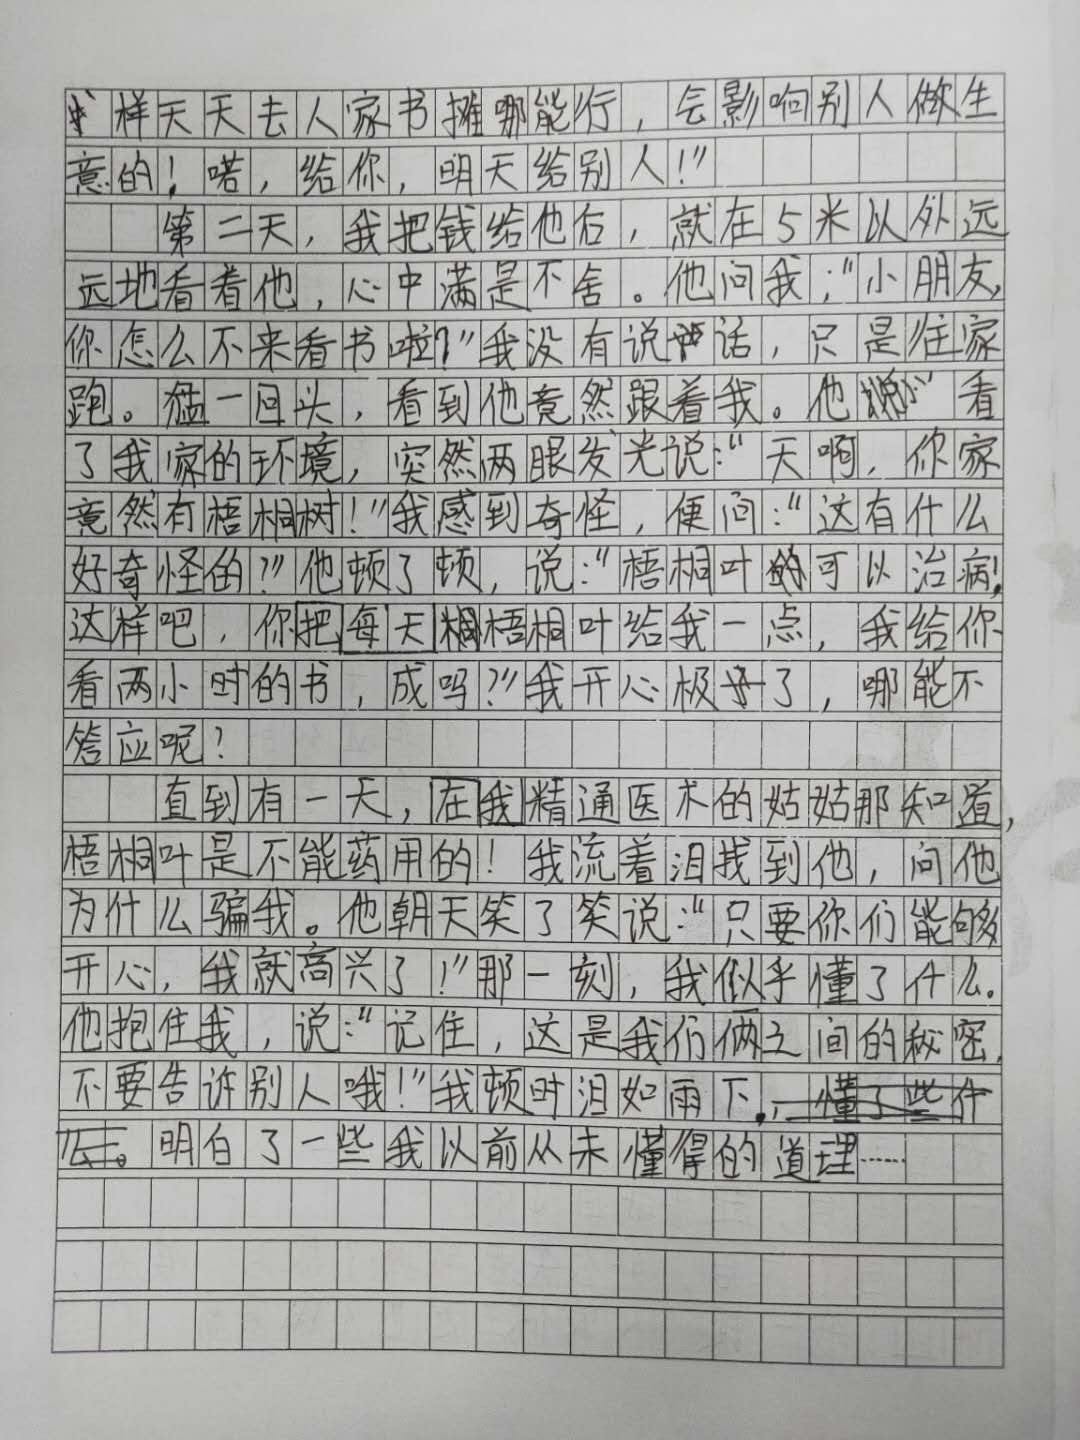 样天天去人家书摊哪能行，会影响别人做生
意的！喏，给你，明天给别人！”
第二天，我把钱给他后，就在5米以外远
远地看着他，心中满是不舍。他问我：“小朋友，
你怎么不来看书啦？”我没有说话，只是往家
跑。猛一回头，看到他竟然跟着我。他看
了我家的环境，突然两眼发光说：“天啊，你家
竟然有梧桐树！”我感到奇怪，便问：“这有什么
好奇怪的？”他顿了顿，说：“梧桐叶可以治病！
这样吧，你把每天梧桐叶给我一点，我给你
看两小时的书，成吗？”我开心极了，哪能不
答应呢？
直到有一天，在我精通医术的姑姑那知道，
梧桐叶是不能药用的！我流着泪找到他，问他
为什么骗我。他朝天笑了笑说：“只要你们能够
开心，我就高兴了！”那一刻，我似乎懂了什么。
他抱住我，说：“记住，这是我们俩之间的秘密，
不要告诉别人哦！”我顿时泪如雨下，懂了些什
么。明白了一些我以前从未懂得的道理……